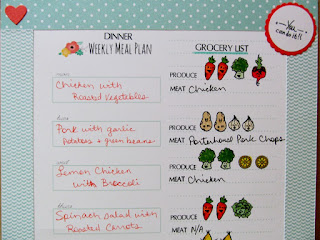 DINNER
WEEKLY MEAL PLAN
GROCERY LIST
You
can do it!!
mon
Chicken with
Roasted Vegetables
PRODUCE
MEAT Chicken
tues
Pork with garlic
Potatoes + green beans
PRODUCE
MEAT Porterhouse Pork Chops
wed
Lemon Chicken
with Broccoli
PRODUCE
MEAT Chicken
thurs
Spinach salad with
Roasted Carrots
PRODUCE
MEAT N/A